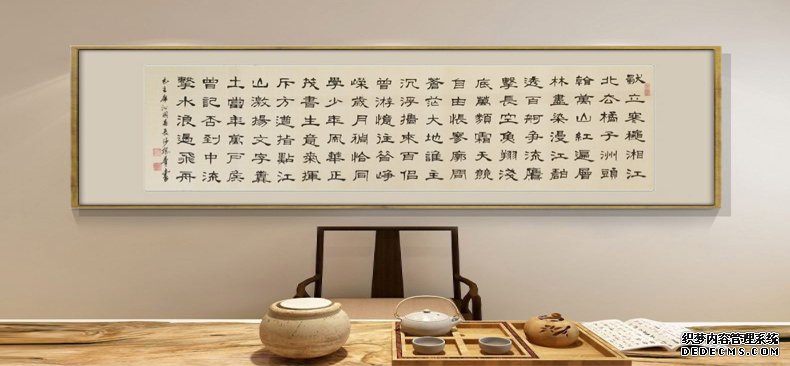 獨立寒穐湘江
北去橘子洲頭
看萬山紅遍層
林盡染漫江碧
透百舸爭流鷹
擊長空魚翔淺
底萬類霜天競
自由悵寥廓問
蒼茫大地誰主
沉浮攜來百侶
曾游憶往昔崢
嶸歲月稠恰同
學少年風華正
茂書生意氣揮
斥方遒指點江
山激揚文字糞
土當年萬戶侯
曾記否到中流
擊水浪遏飛舟
毛主席沁園春長沙
织梦内容管理系统
DEDECMS.COM